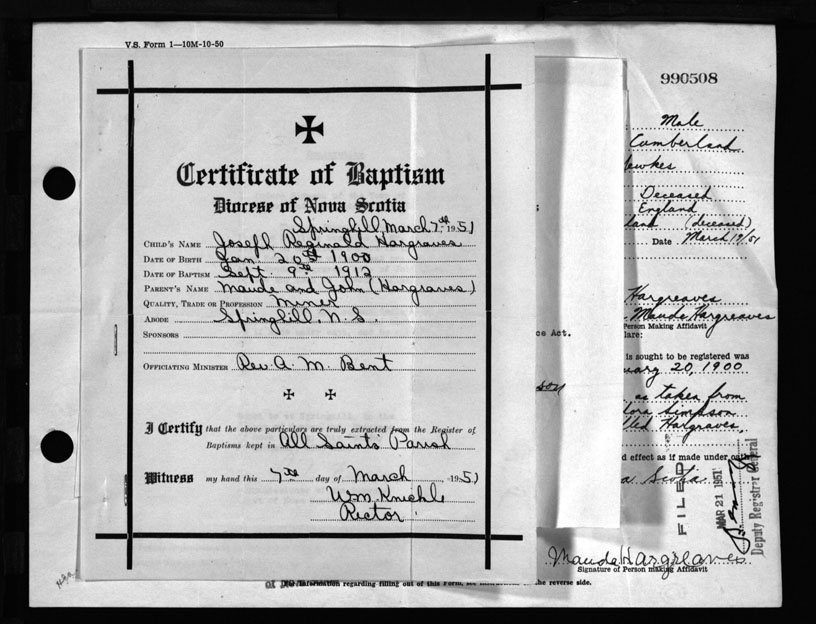 V.S. Form 1—10M-10-50
Certificate of Baptism
Diocese of Nova Scotia
Springhill March 7th 1951
Child's Name Joseph Reginald Hargraves
Date of Birth Jan. 20th 1900
Date of Baptism Sept. 9th 1912
Parent's Name Maude and John (Hargraves)
Quality, Trade or Profession Miner
Abode Springhill, N.S.
Sponsors
Officiating Minister Rev. A. M. Bent
I Certify that the above particulars are truly extracted from the Register of
Baptisms kept in All Saints Parish
Witness my hand this 7th day of March 1951
Wm. Knichle
Rector
990508
Male
Cumberland
Deceased
England
(deceased)
Date March 19/51
Hargreaves
Maude Hargreaves
Person Making Affidavit
lare:
is sought to be registered was
uary 20, 1900
ce Act.
as taken from
lora Simpson
lled Hargraves,
d effect as if made under oath
Scotia
FILED
MAR 21 1951
Deputy Registrar General
Maude Hargreaves
Signature of Person making Affidavit
information regarding filling out of this Form, see the reverse side.